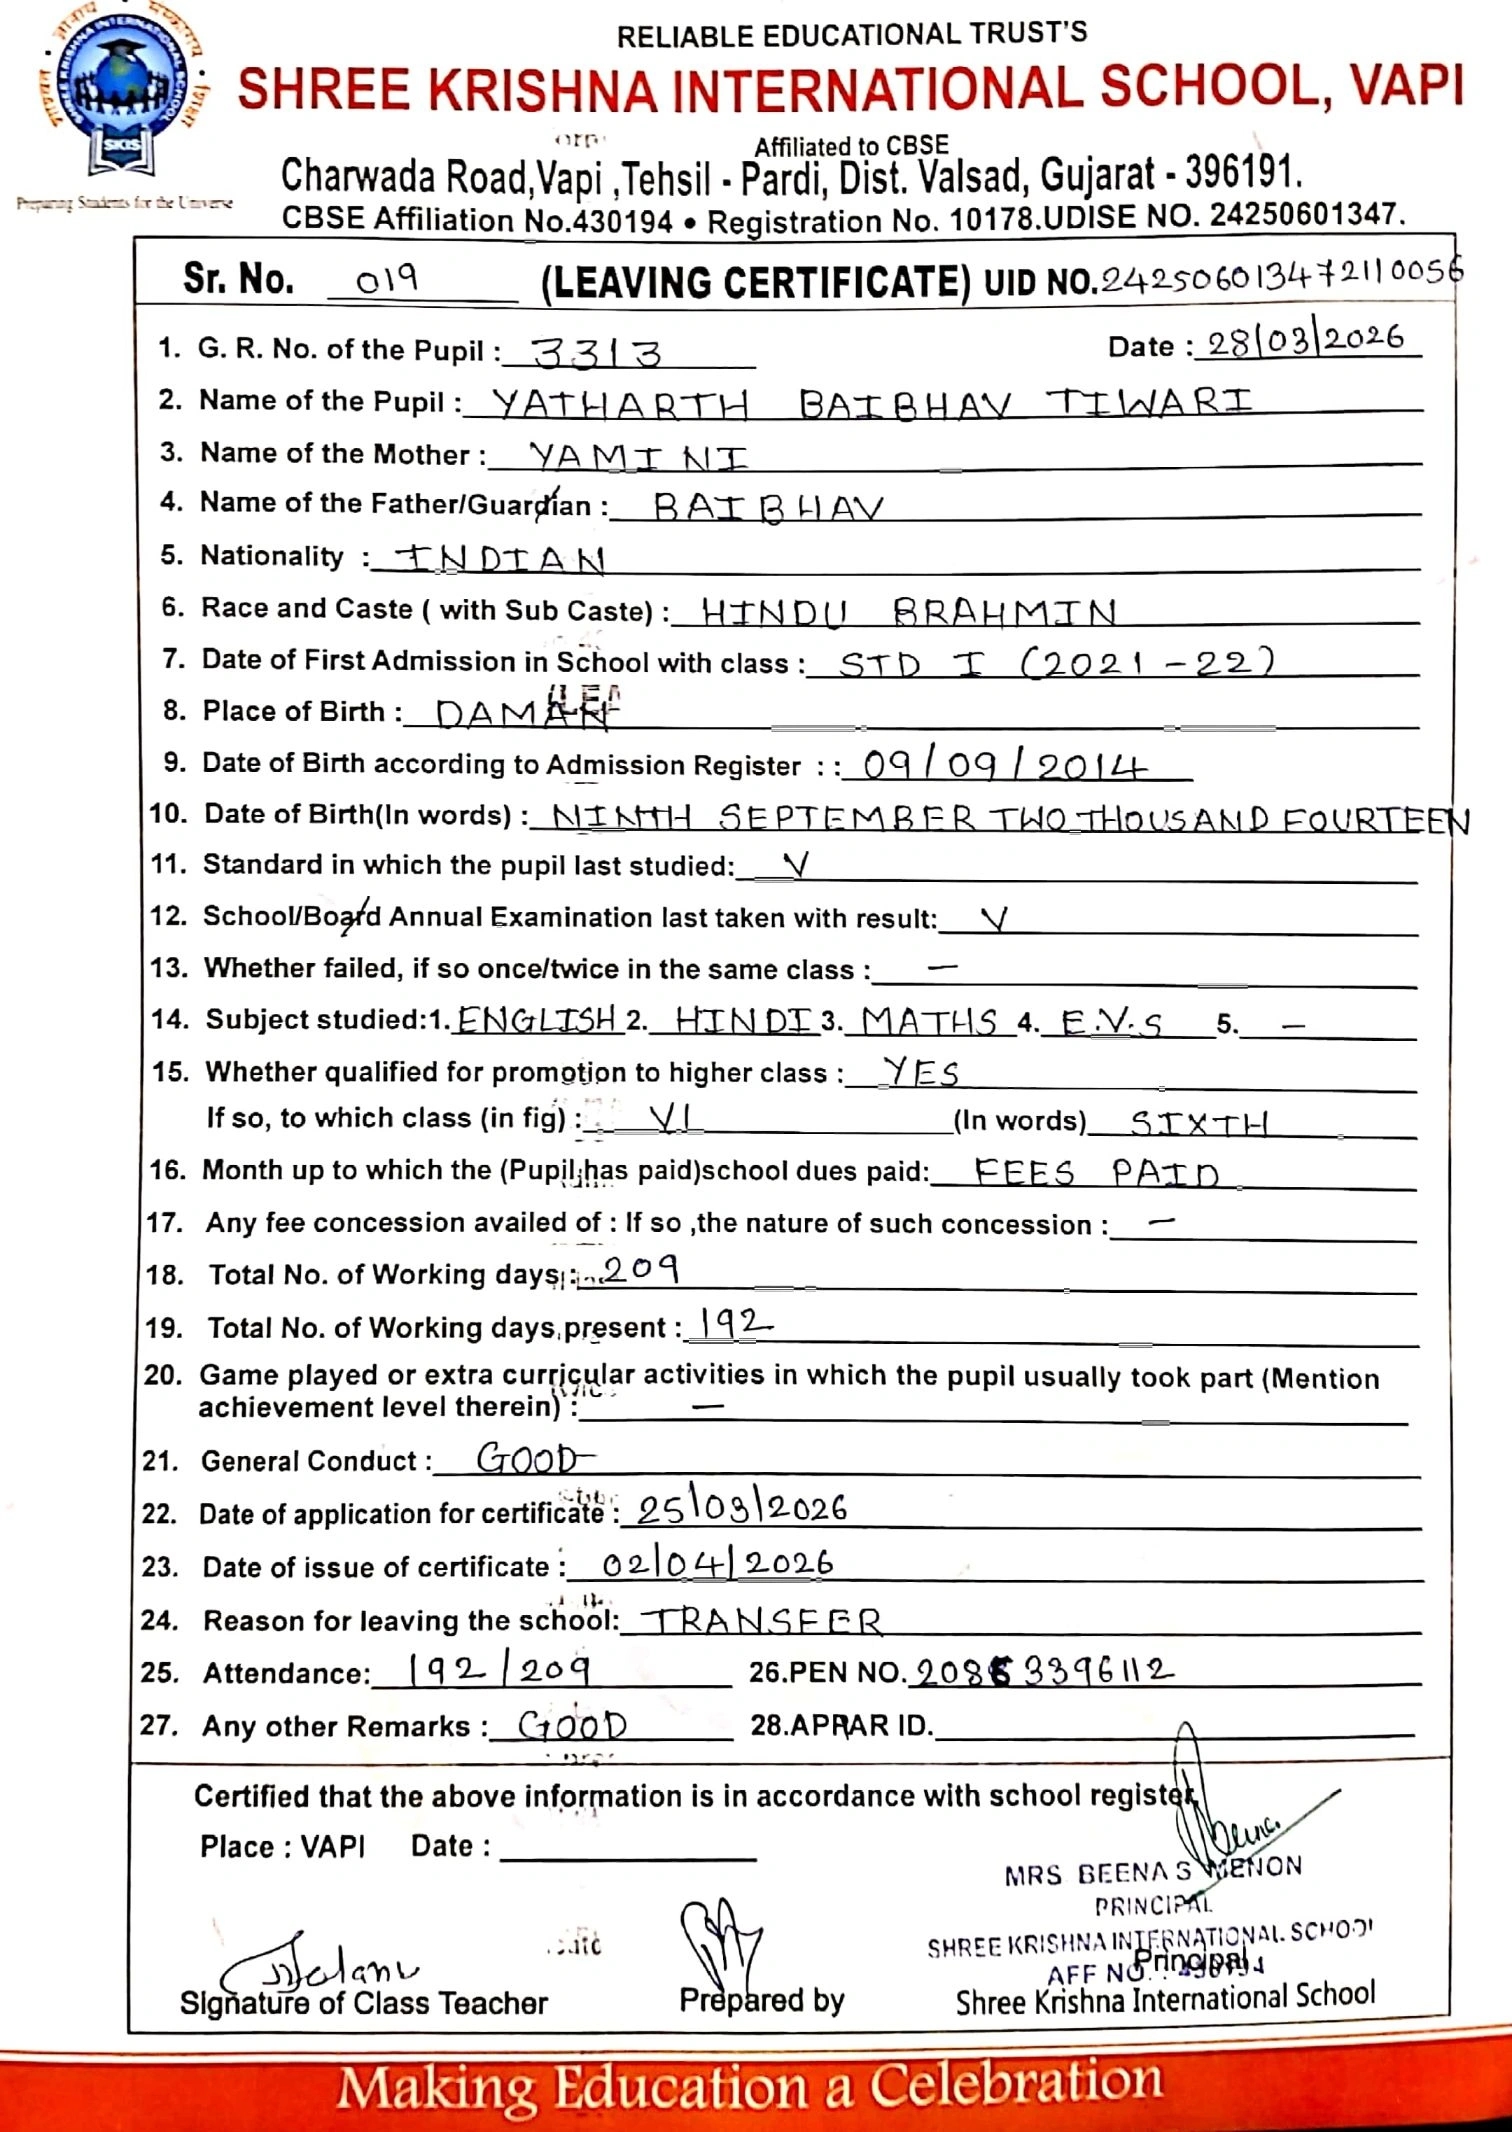 RELIABLE EDUCATIONAL TRUST'S
SHREE KRISHNA INTERNATIONAL SCHOOL, VAPI
SHREE KRISHNA INTERNATIONAL SCHOOL
SKIS
Preparing Students for the Universe
Affiliated to CBSE
Charwada Road,Vapi ,Tehsil - Pardi, Dist. Valsad, Gujarat - 396191.
CBSE Affiliation No.430194 • Registration No. 10178.UDISE NO. 24250601347.
Sr. No. 019 (LEAVING CERTIFICATE) UID NO.242506013472110056
1. G. R. No. of the Pupil : 3313 Date : 28/03/2026
2. Name of the Pupil : YATHARTH BAIBHAV TIWARI
3. Name of the Mother : YAMINI
4. Name of the Father/Guardian : BAIBHAV
5. Nationality : INDIAN
6. Race and Caste ( with Sub Caste) : HINDU BRAHMIN
7. Date of First Admission in School with class : STD I (2021-22)
8. Place of Birth : DAMAN
9. Date of Birth according to Admission Register : : 09/09/2014
10. Date of Birth(In words) : NINTH SEPTEMBER TWO THOUSAND FOURTEEN
11. Standard in which the pupil last studied: V
12. School/Board Annual Examination last taken with result: V
13. Whether failed, if so once/twice in the same class : —
14. Subject studied:1. ENGLISH 2. HINDI 3. MATHS 4. E.V.S 5. —
15. Whether qualified for promotion to higher class : YES
If so, to which class (in fig) : VI (In words) SIXTH
16. Month up to which the (Pupil has paid)school dues paid: FEES PAID
17. Any fee concession availed of : If so ,the nature of such concession : —
18. Total No. of Working days : 209
19. Total No. of Working days present : 192
20. Game played or extra curricular activities in which the pupil usually took part (Mention
achievement level therein) : —
21. General Conduct : GOOD
22. Date of application for certificate : 25/03/2026
23. Date of issue of certificate : 02/04/2026
24. Reason for leaving the school: TRANSFER
25. Attendance: 192/209 26.PEN NO. 20863396112
27. Any other Remarks : GOOD 28.APRAR ID.
Certified that the above information is in accordance with school register.
Place : VAPI Date :
MRS BEENA S MENON
PRINCIPAL
SHREE KRISHNA INTERNATIONAL SCHOOL
AFF NO. : 430194
Principal
Signature of Class Teacher Prepared by Shree Krishna International School
Making Education a Celebration